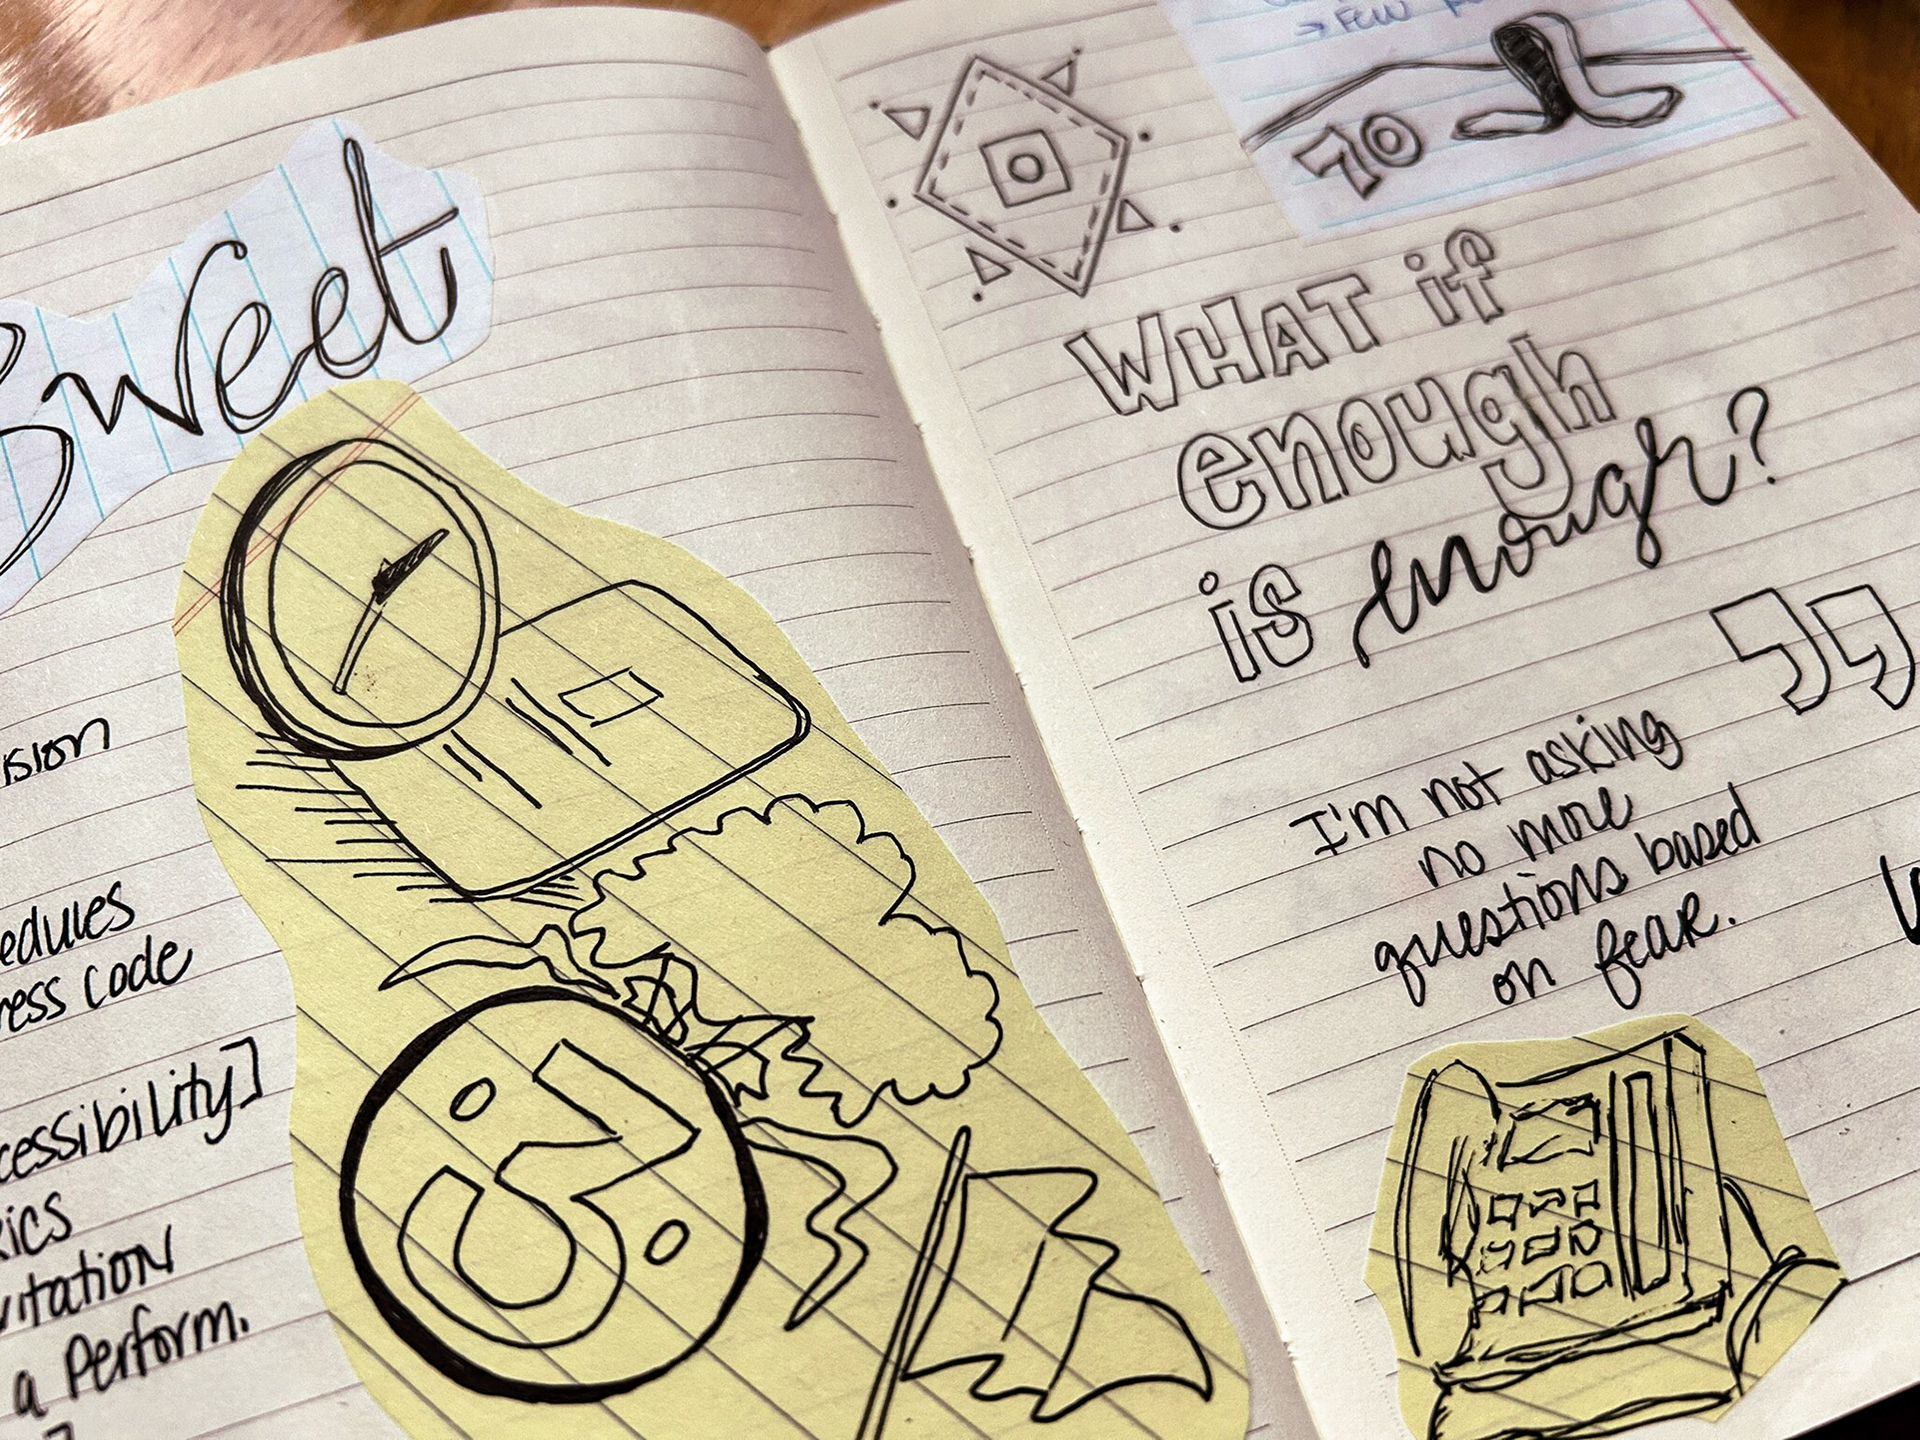 Sweet
ision
edules
ress code
cessibility]
ics
itation
a Perform.
→ FEW
70
WHAT if
enough
is enough?
”
I'm not asking
no more
questions based
on fear.
5